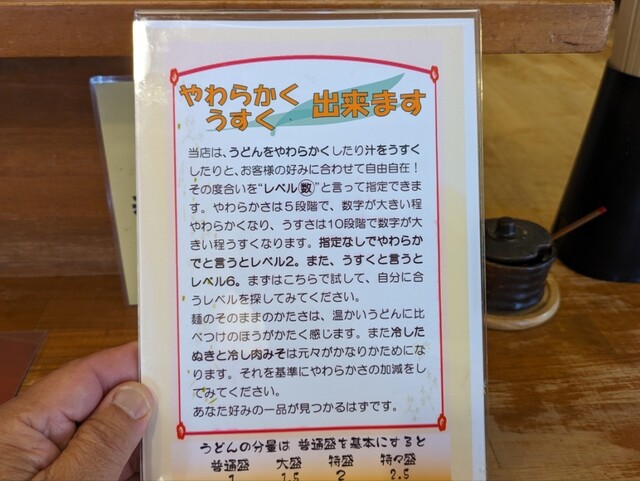 やわらかく
うすく
出来ます
当店は、うどんをやわらかくしたり汁をうすく
したりと、お客様の好みに合わせて自由自在！
その度合いを"レベル数"と言って指定できま
す。やわらかさは５段階で、数字が大きい程
やわらかくなり、うすさは10段階で数字が大
きい程うすくなります。指定なしでやわらか
でと言うとレベル2。また、うすくと言うと
レベル6。まずはこちらで試して、自分に合
うレベルを探してみてください。
麺のそのままのかたさは、温かいうどんに比
べつけのほうがかたく感じます。また冷した
ぬきと冷し肉みそは元々がかなりかためにな
ります。それを基準にやわらかさの加減をし
てみてください。
あなた好みの一品が見つかるはずです。
うどんの分量は 普通盛を基本にすると
普通盛 大盛 特盛 特々盛
1 1.5 2 2.5